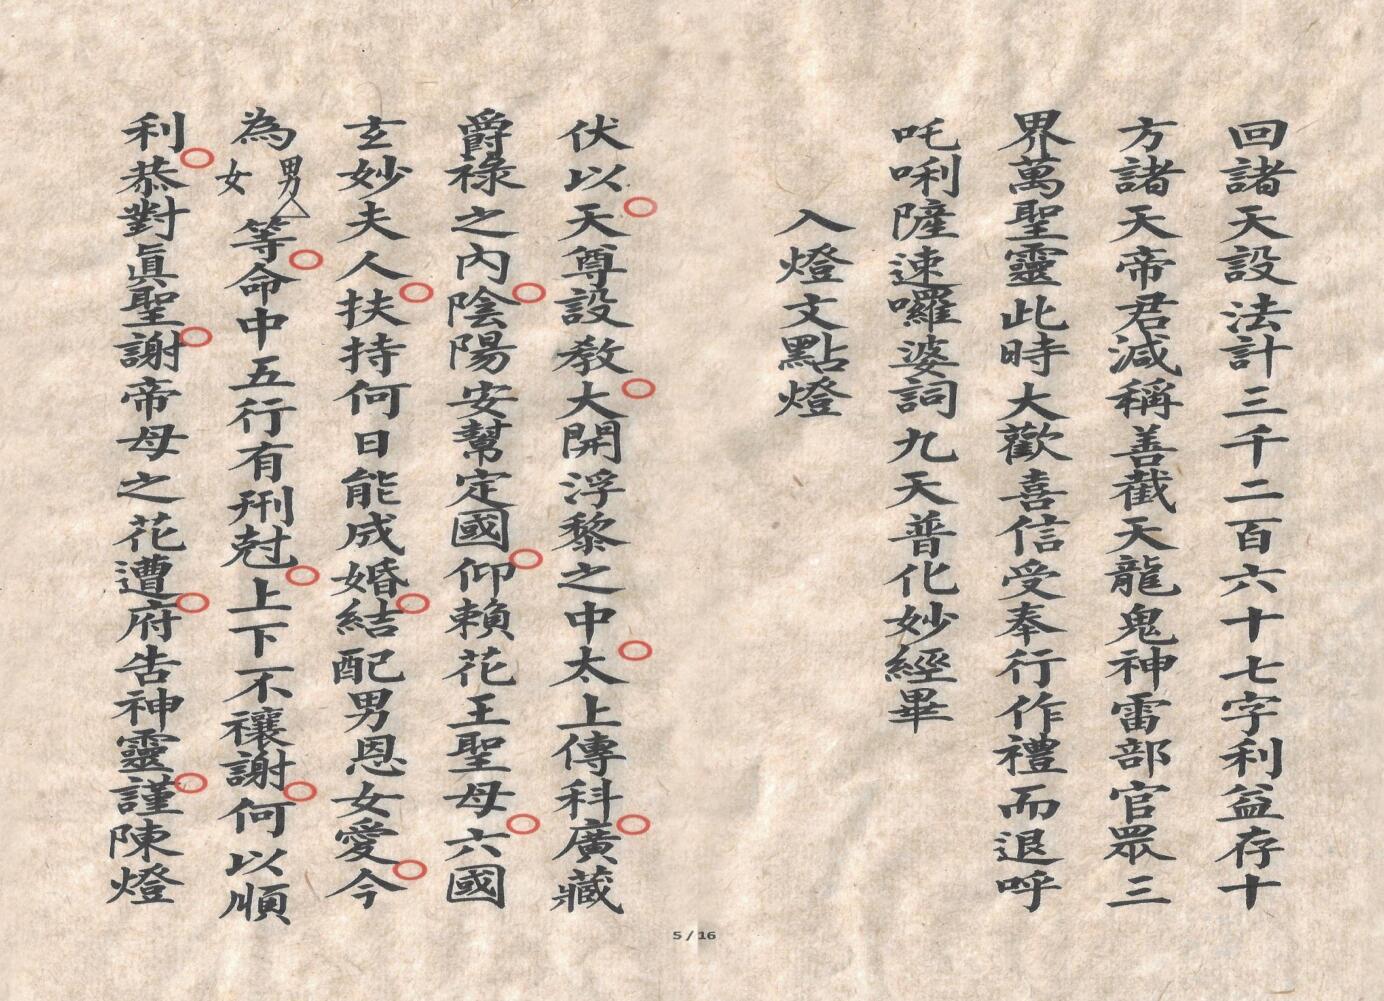 回諸天設法計三千二百六十七字利益存十
方諸天帝君減稱善截天龍鬼神雷部官眾三
界萬聖靈此時大歡喜信受奉行作禮而退呼
吒唎薩速囉婆詞九天普化妙經畢
入燈文點燈
伏以天尊設教大開浮黎之中太上傳科廣藏
爵祿之內陰陽安幫定國仰賴花王聖母六國
玄妙夫人扶持何日能成婚結配男恩女愛今
為男女等命中五行有刑尅上下不禳謝何以順
利恭對眞聖謝帝母之花遭府告神靈謹陳燈
5 / 16